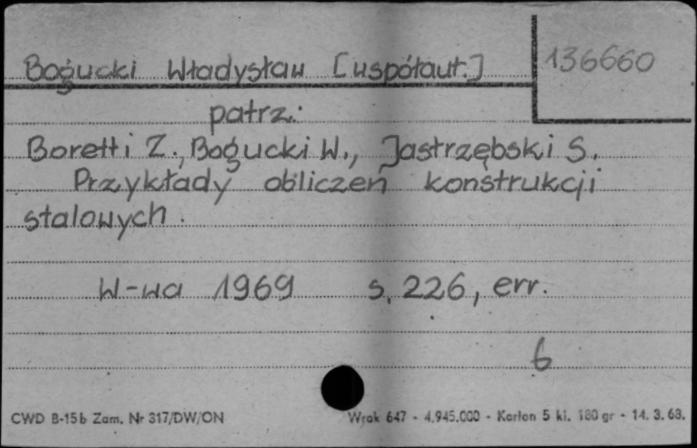 Bogucki Władysław [współaut.]
136660
patrz:
Boretti Z., Bogucki W., Jastrzębski S.
Przykłady obliczeń konstrukcji
stalowych.
W-wa 1969 s. 226, err.
6
CWD B-15b Zam. Nr 317/DW/ON Wrak 647 - 4.945.000 - Karton 5 kl. 180 gr - 14. 3. 68.